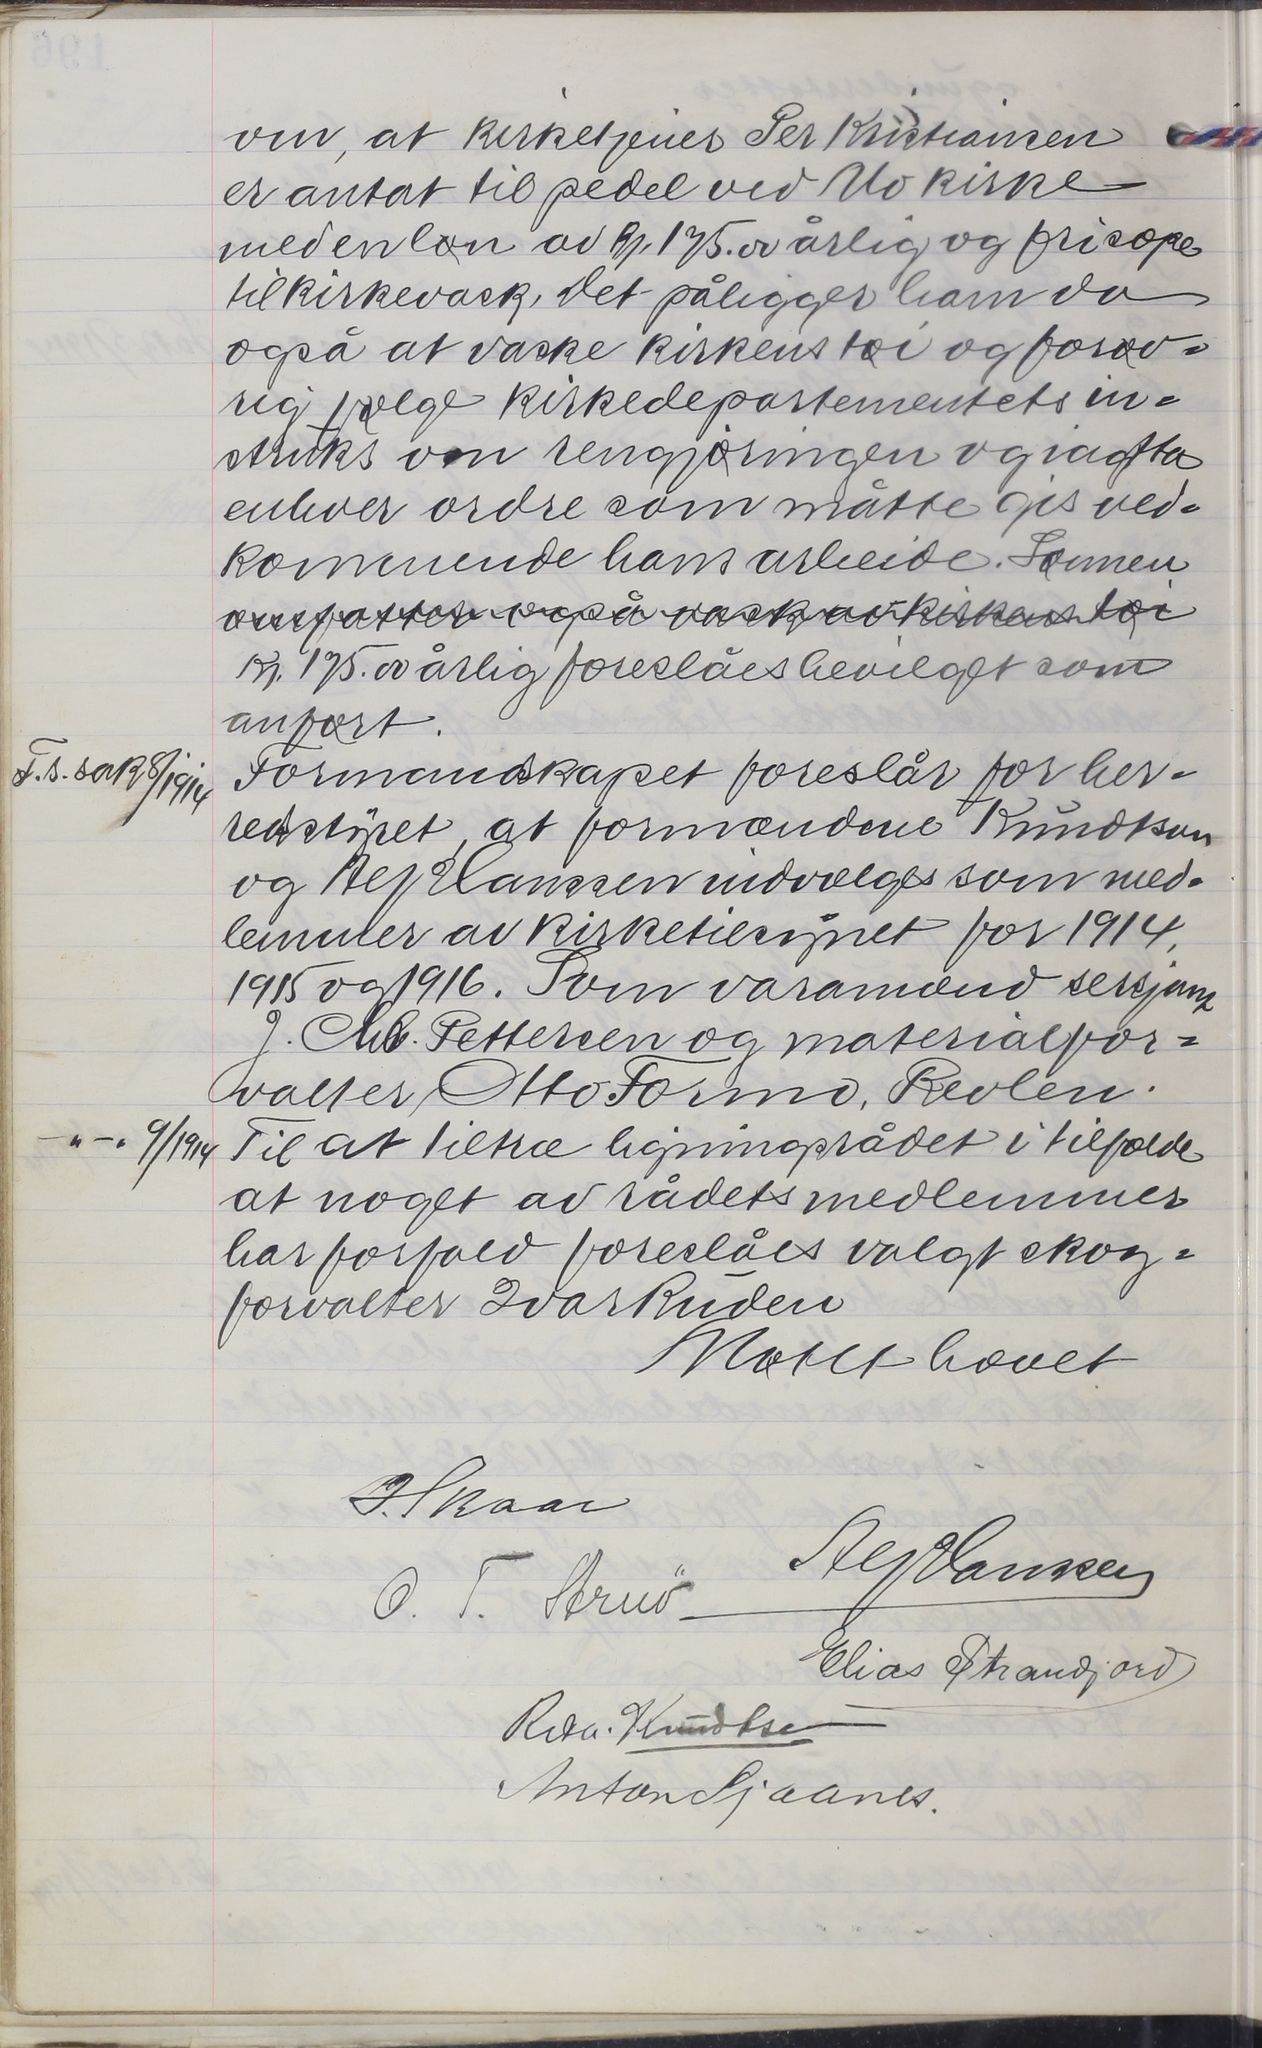 om, at kirketjener Per Kristiansen
er antat til pedel ved Mo kirke
med en løn av kr. 175.00 årlig og frisåpe
til kirkevask, det påligger ham da
også at vaske kirkens tøi og forøv-
rig følge kirkedepartementets in-
struks om rengjøringen og iagtta
enhver ordre som måtte gis ved-
kommende hans arbeide. Lønnen
omfatter også vask av kirkens tøi
kr. 175.00 årlig foreslåes bevilget som
anført.
F.s. sak 8/1914 Formandskapet foreslår for her-
redstyret, at formændene Knudtsen
og Alf Hanssen indvælges som med-
lemmer av kirketilsynet for 1914,
1915 og 1916. Som varamænd sersjant
J. Chr. Pettersen og materialfor-
valter Otto Formo, Revlen.
—"—" 9/1914 Til at tiltræ ligningsrådet i tilfælde
at noget av rådets medlemmer
har forfald foreslåes valgt skog-
forvalter Ivar Ruden
Møtet hævet
I. Skaar
Alf Hanssen
O. T. Struø
Elias Strandjord
Knudtsen
Anton Sjaanes.